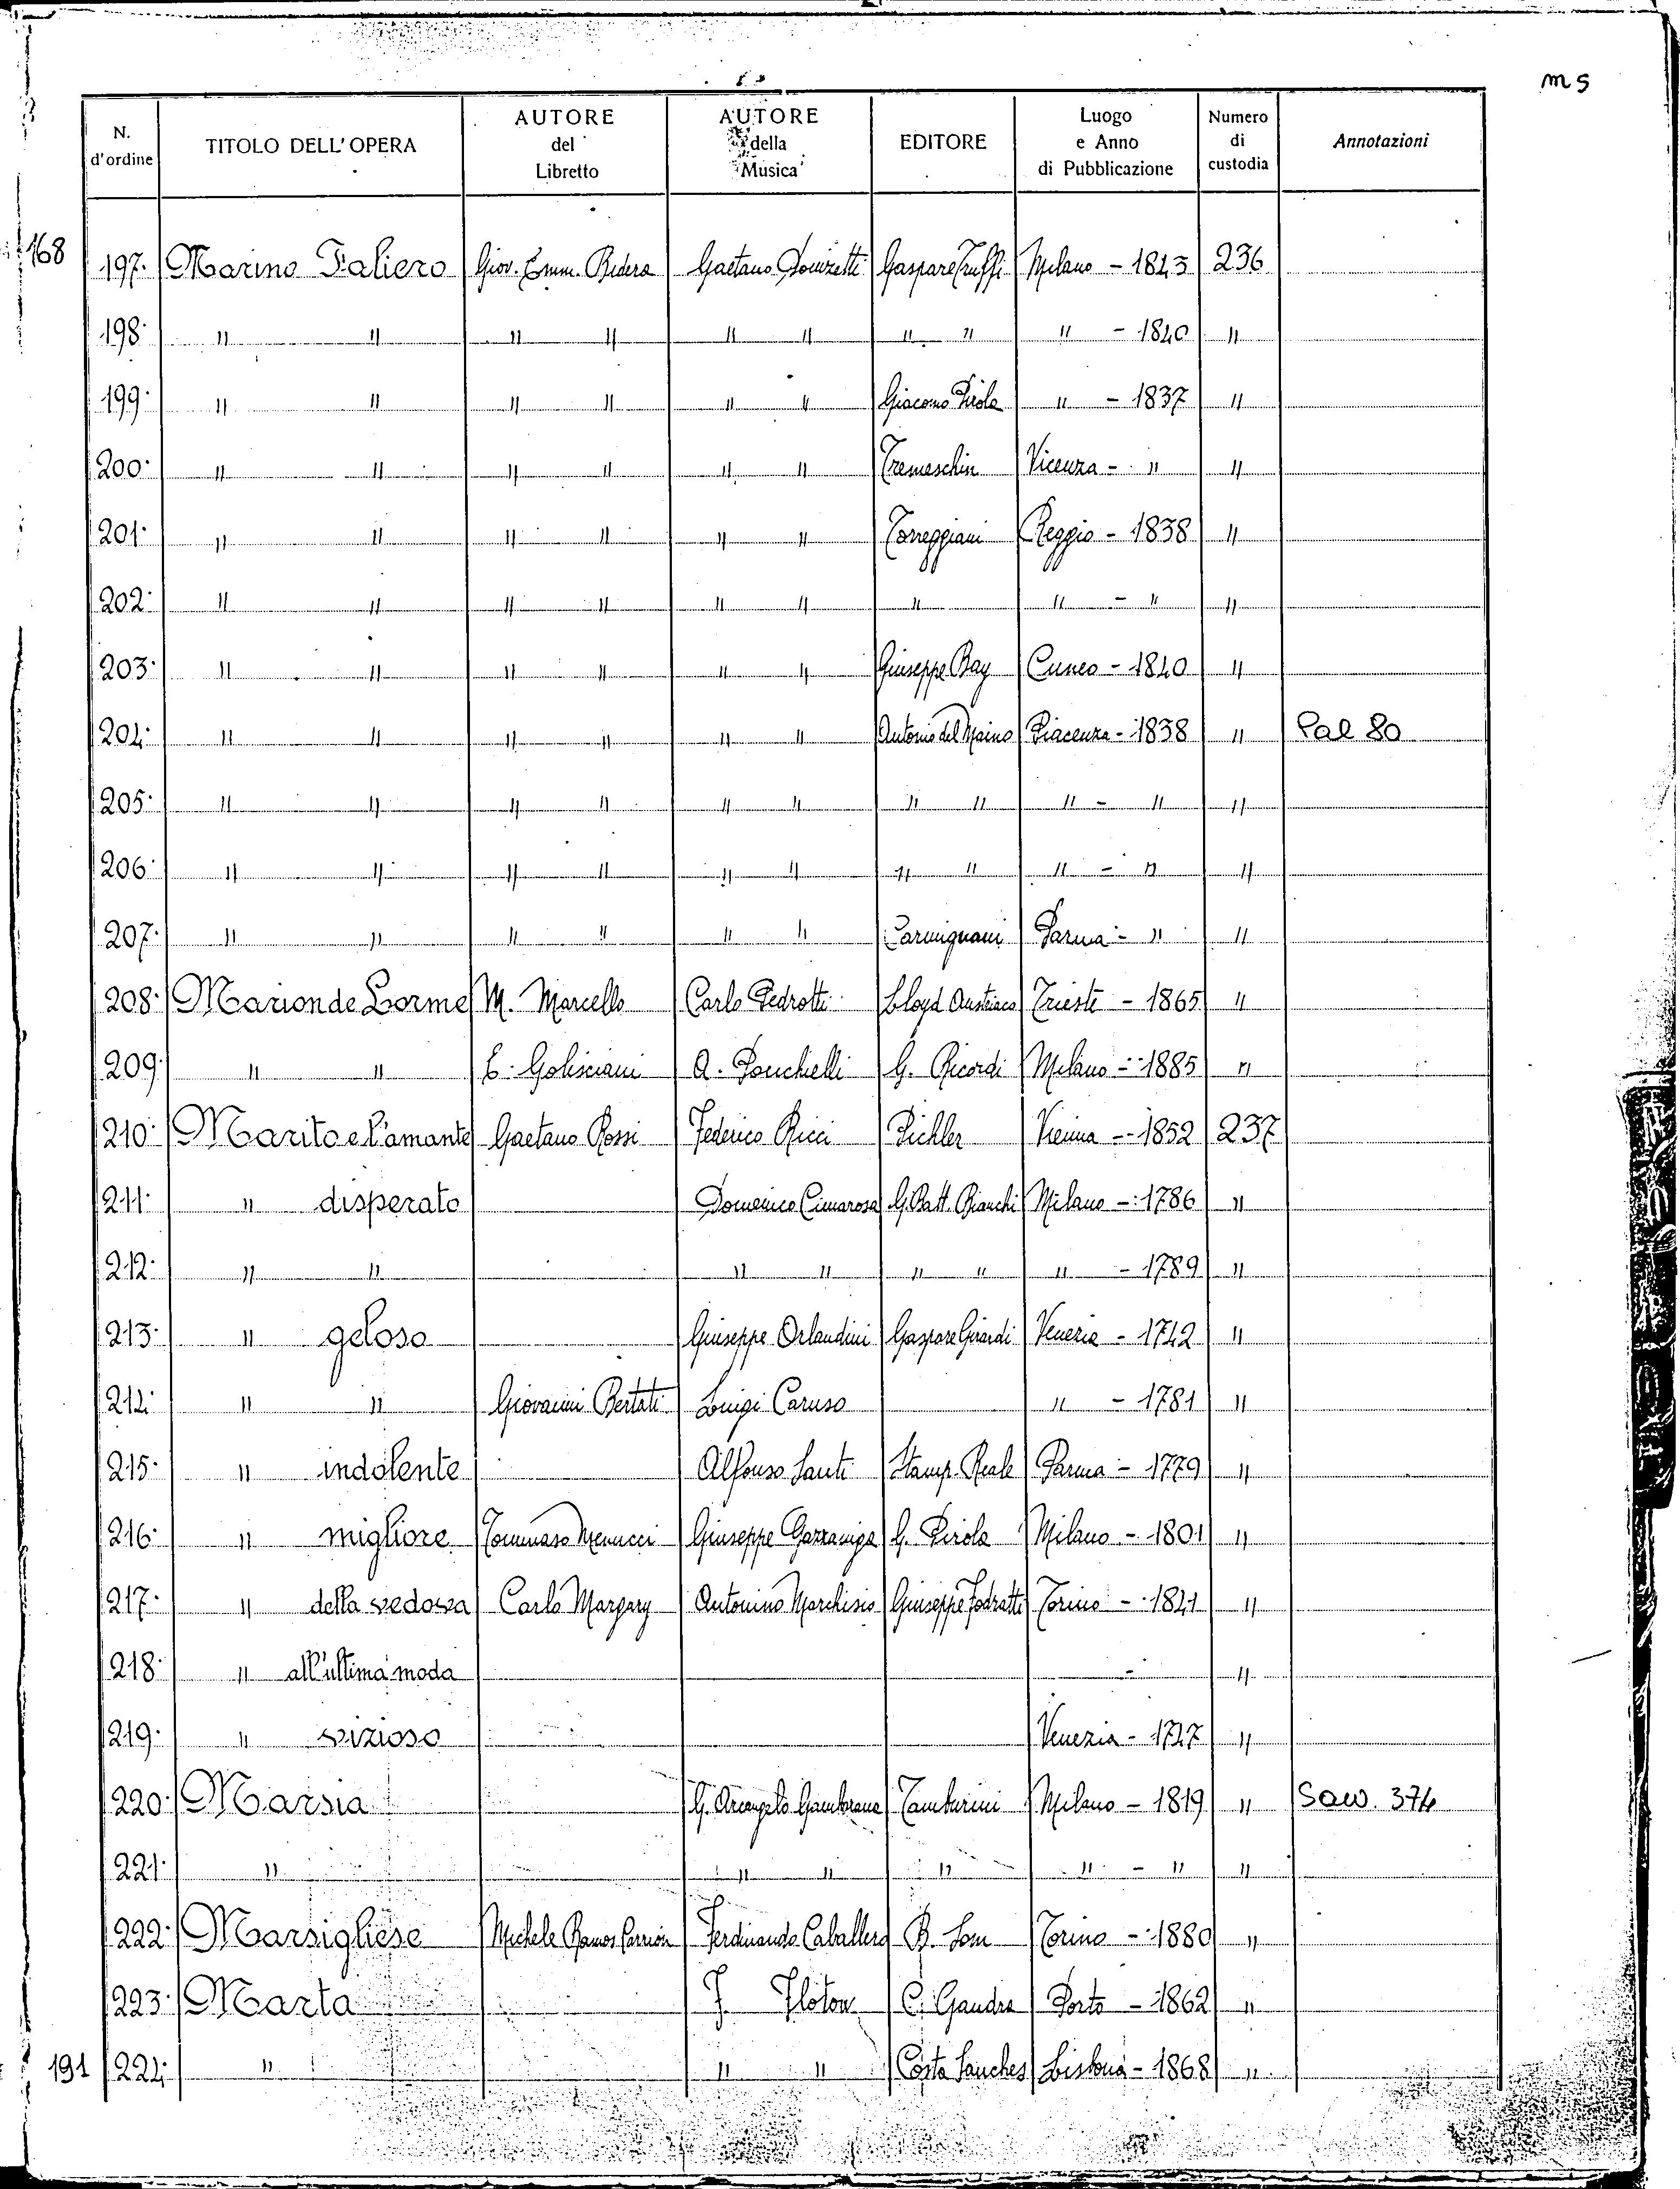 m 5
N. d'ordine | TITOLO DELL'OPERA | AUTORE del Libretto | AUTORE della Musica | EDITORE | Luogo e Anno di Pubblicazione | Numero di custodia | Annotazioni
168 197. Marino Faliero | Giov. Emm. Bidera | Gaetano Donizetti | Gaspare Truffi | Milano - 1843 | 236
198. " " | " " | " " | " " | " - 1840 | "
199. " " | " " | " " | Giacomo Pirola | " - 1837 | "
200. " " | " " | " " | Tremeschin | Vicenza - " | "
201. " " | " " | " " | Torreggiani | Reggio - 1838 | "
202. " " | " " | " " | " | " - " | "
203. " " | " " | " " | Giuseppe Bay | Cuneo - 1840 | "
204. " " | " " | " " | Antonio del Maino | Piacenza - 1838 | " | Pal 80
205. " " | " " | " " | " " | " - " | "
206. " " | " " | " " | " " | " - " | "
207. " " | " " | " " | Carmignani | Parma - " | "
208. Marion de Lorme | M. Marcello | Carlo Pedrotti | Lloyd Austriaco | Trieste - 1865 | "
209. " " | E. Golisciani | A. Ponchielli | G. Ricordi | Milano - 1885 | "
210. Marito e l'amante | Gaetano Rossi | Federico Ricci | Pichler | Vienna - 1852 | 237
211. " disperato | | Domenico Cimarosa | G. Batt. Bianchi | Milano - 1786 | "
212. " " | | " " | " " | " - 1789 | "
213. " geloso | | Giuseppe Orlandini | Gaspare Girardi | Venezia - 1742 | "
214. " " | Giovanni Bertati | Luigi Caruso | | " - 1781 | "
215. " indolente | | Alfonso Santi | Stamp. Reale | Parma - 1779 | "
216. " migliore | Tommaso Menucci | Giuseppe Gazzaniga | G. Pirola | Milano - 1801 | "
217. " della vedova | Carlo Margary | Antonino Marchisio | Giuseppe Fodratti | Torino - 1841 | "
218. " all'ultima moda | | | | - | "
219. " vizioso | | | | Venezia - 1727 | "
220. Marsia | | G. Arcangelo Gambarana | Tamburini | Milano - 1819 | " | Saw. 374
221. " | | " " | " | " - " | "
222. Marsigliese | Michele Ramos Carrión | Ferdinando Caballero | B. Som | Torino - 1880 | "
223. Marta | | F. Flotow | C. Gandra | Porto - 1862 | "
191 224. " | | " " | Costa Sanches | Lisbona - 1868 | "